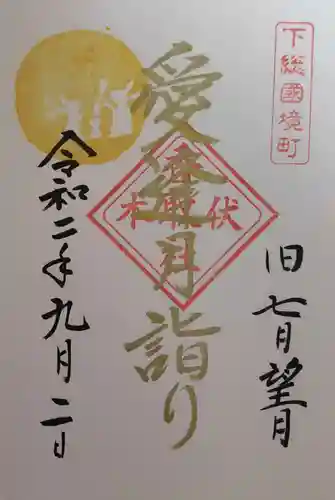 下総國境町
旧七月望月
愛逢月詣り
伏木
令和二年九月二日